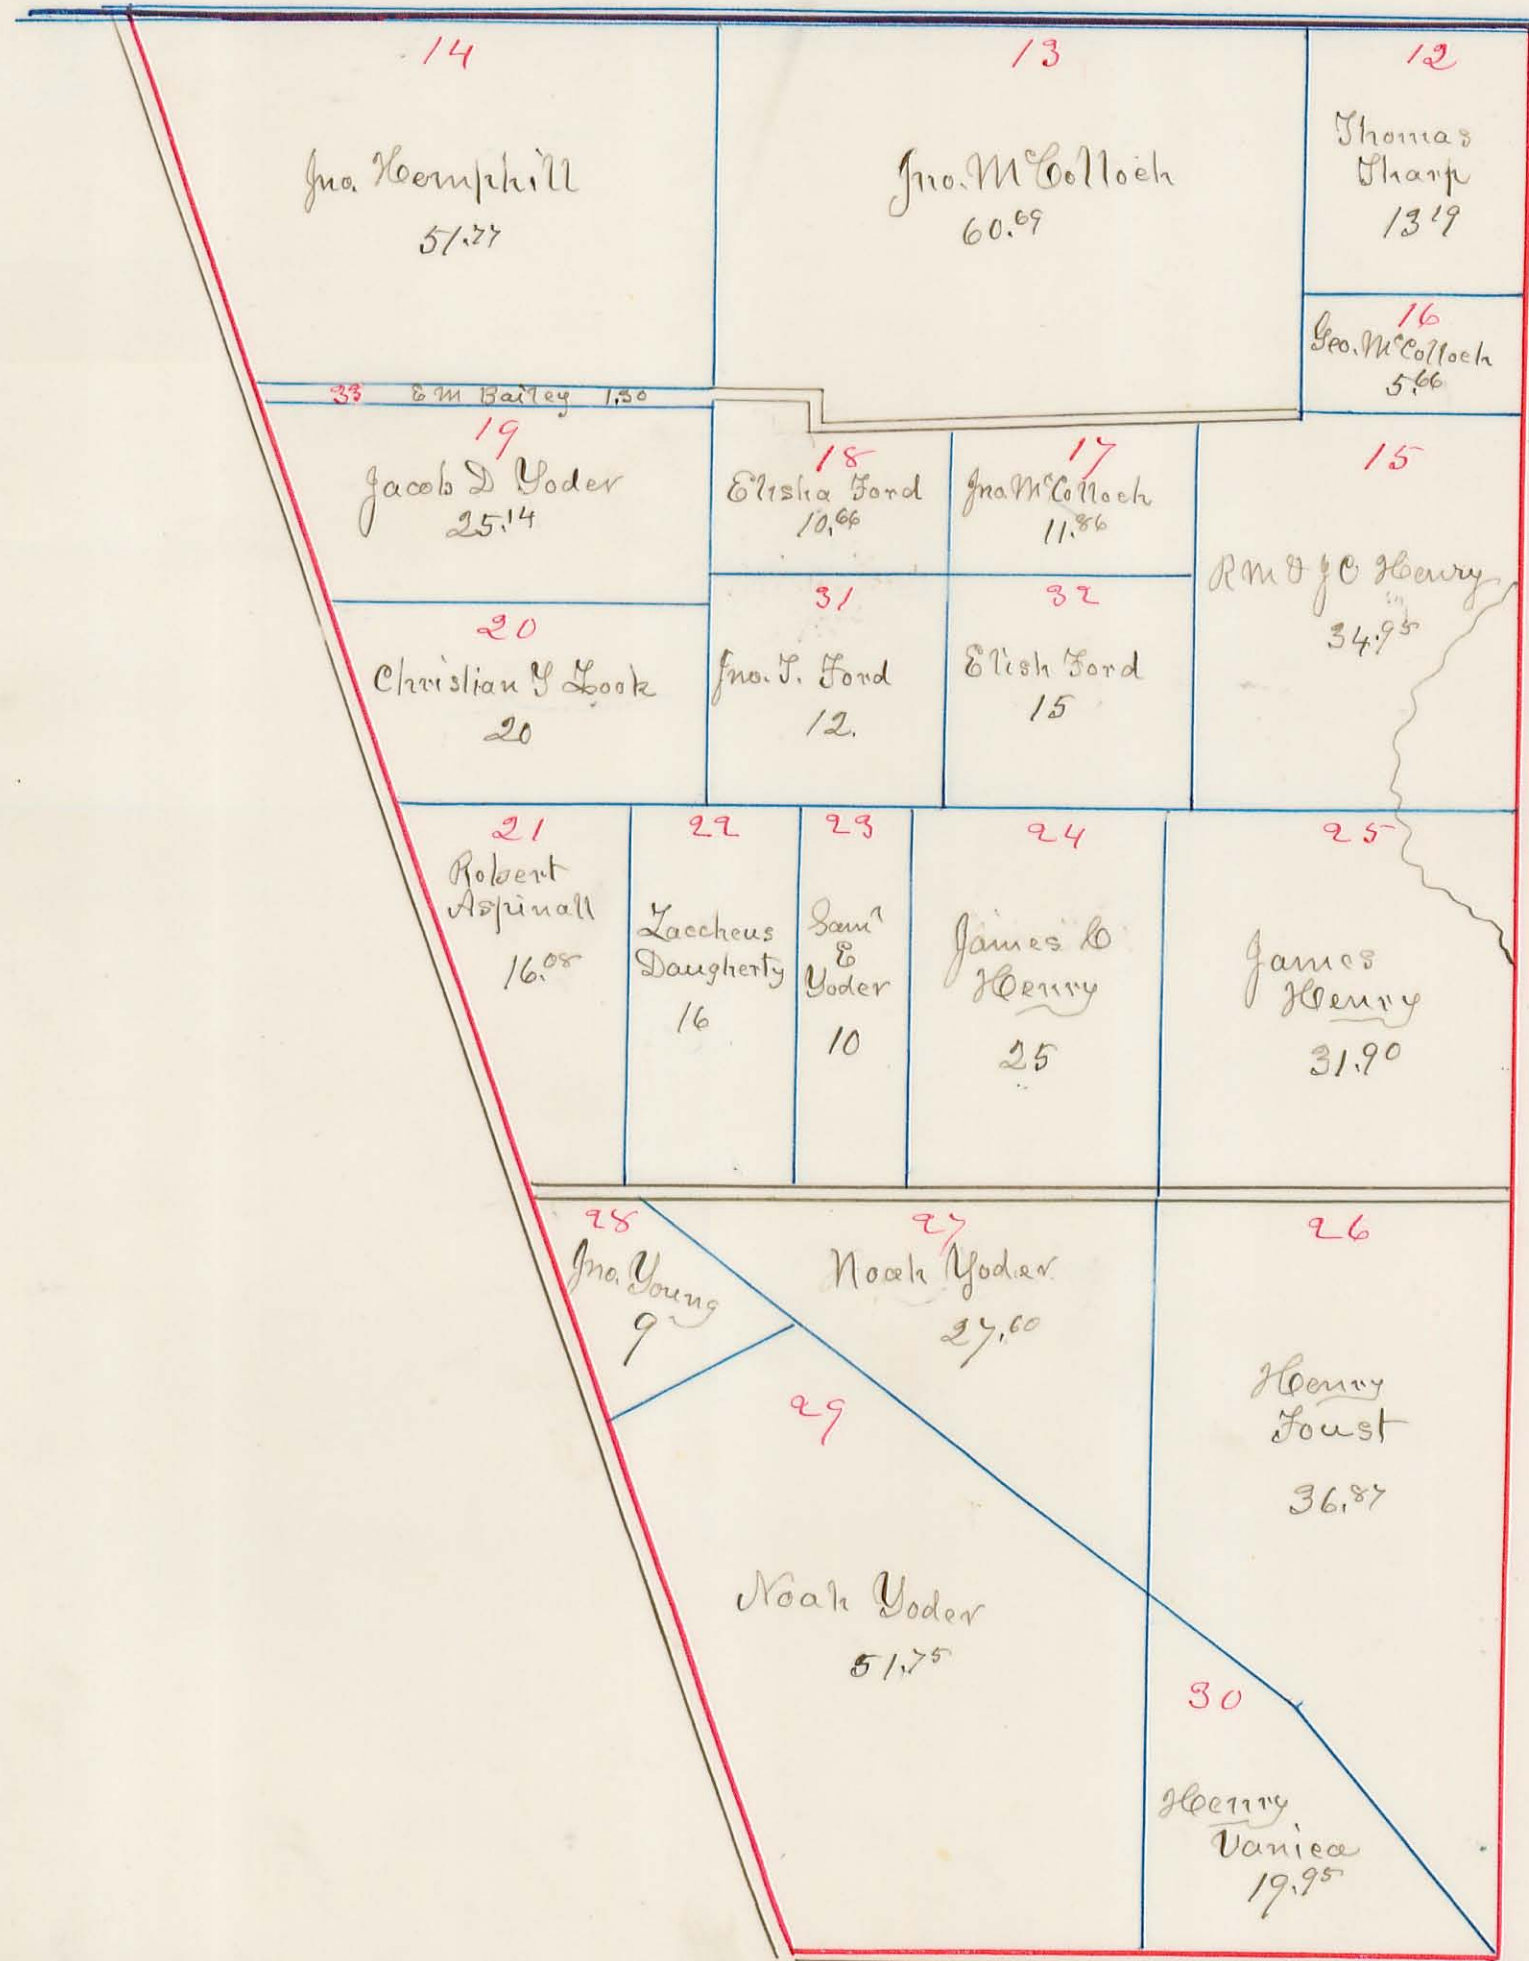 14
Jno. Hemphill
51.77
13
Jno. McColloch
60.69
12
Thomas
Tharp
13 19
16
Geo. McColloch
5.66
33 E M Bailey 1.50
19
Jacob D Yoder
25.14
18
Elisha Ford
10.66
17
Jno McColloch
11.86
15
R M & J C Henry
34.95
20
Christian Y Zook
20
31
Jno. T. Ford
12.
32
Elish Ford
15
21
Robert
Aspinall
16.08
22
Zaccheus
Daugherty
16
23
Saml
E
Yoder
10
24
James C
Henry
25
25
James
Henry
31.90
28
Jno. Young
9
27
Noah Yoder
27.60
26
Henry
Foust
36.87
29
Noah Yoder
51.75
30
Henry
Vanica
19.95